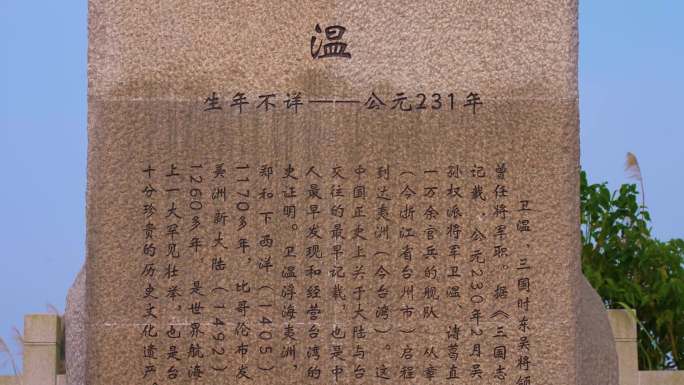 温
生年不详——公元231年
卫温 三国时东吴将领
曾任将军职。据《三国志
记载：公元230年2月吴
孙权派将军卫温、诸葛直
一万余官兵的舰队 从章
（今浙江省台州市）启程
到达夷洲（今台湾）。这
中国正史上关于大陆与台
交往的最早记载，也是中
人最早发现和经营台湾的
史证明。卫温浮海夷洲，
郑和下西洋（1405）
1170多年，比哥伦布发
美洲新大陆（1492）
1260多年 是世界航海
上一大罕见壮举，也是台
十分珍贵的历史文化遗产。